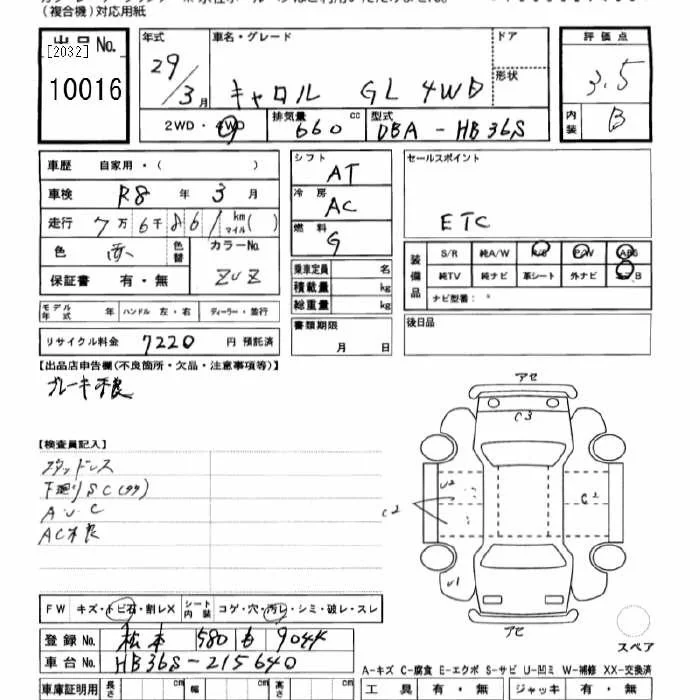 (複合機)対応用紙
出品No.
[2032]
10016
年式
29/3月
車名・グレード
キャロル GL 4WD
ドア
形状
2WD・4WD
排気量 660 cc
型式 DBA-HB36S
評価点
3.5
内装 B
車歴 自家用・( )
車検 R8 年 3 月
走行 7万6千861 km マイル( )
色 赤 色替
カラーNo. ZUZ
保証書 有・無
シフト AT
冷房 AC
燃料 G
乗車定員 名
積載量 kg
総重量 kg
書類期限
月 日
セールスポイント
ETC
装備品
S/R 純A/W R/S P/W ABS
純TV 純ナビ 革シート 外ナビ エアB
ナビ型番:
後日品
モデル年式 年 ハンドル 左・右 ディーラー・並行
リサイクル料金 7220 円 預託済
【出品店申告欄(不良箇所・欠品・注意事項等)】
ブレーキ不良
【検査員記入】
スタッドレス
下廻りSC(タタ)
AUC
AC不良
アセ
C3
U2
C2
C2
U1
アセ
スペア
FW キズ・トビ石・割レX シート内装 コゲ・穴・汚レ・シミ・破レ・スレ
登録No. 松本 580 も 9044
車台No. HB36S-215640
車庫証明用 長さ cm 幅 cm 高さ cm
A-キズ C-腐食 E-エクボ S-サビ U-凹ミ W-補修 XX-交換済
工具 有・無 ジャッキ 有・無